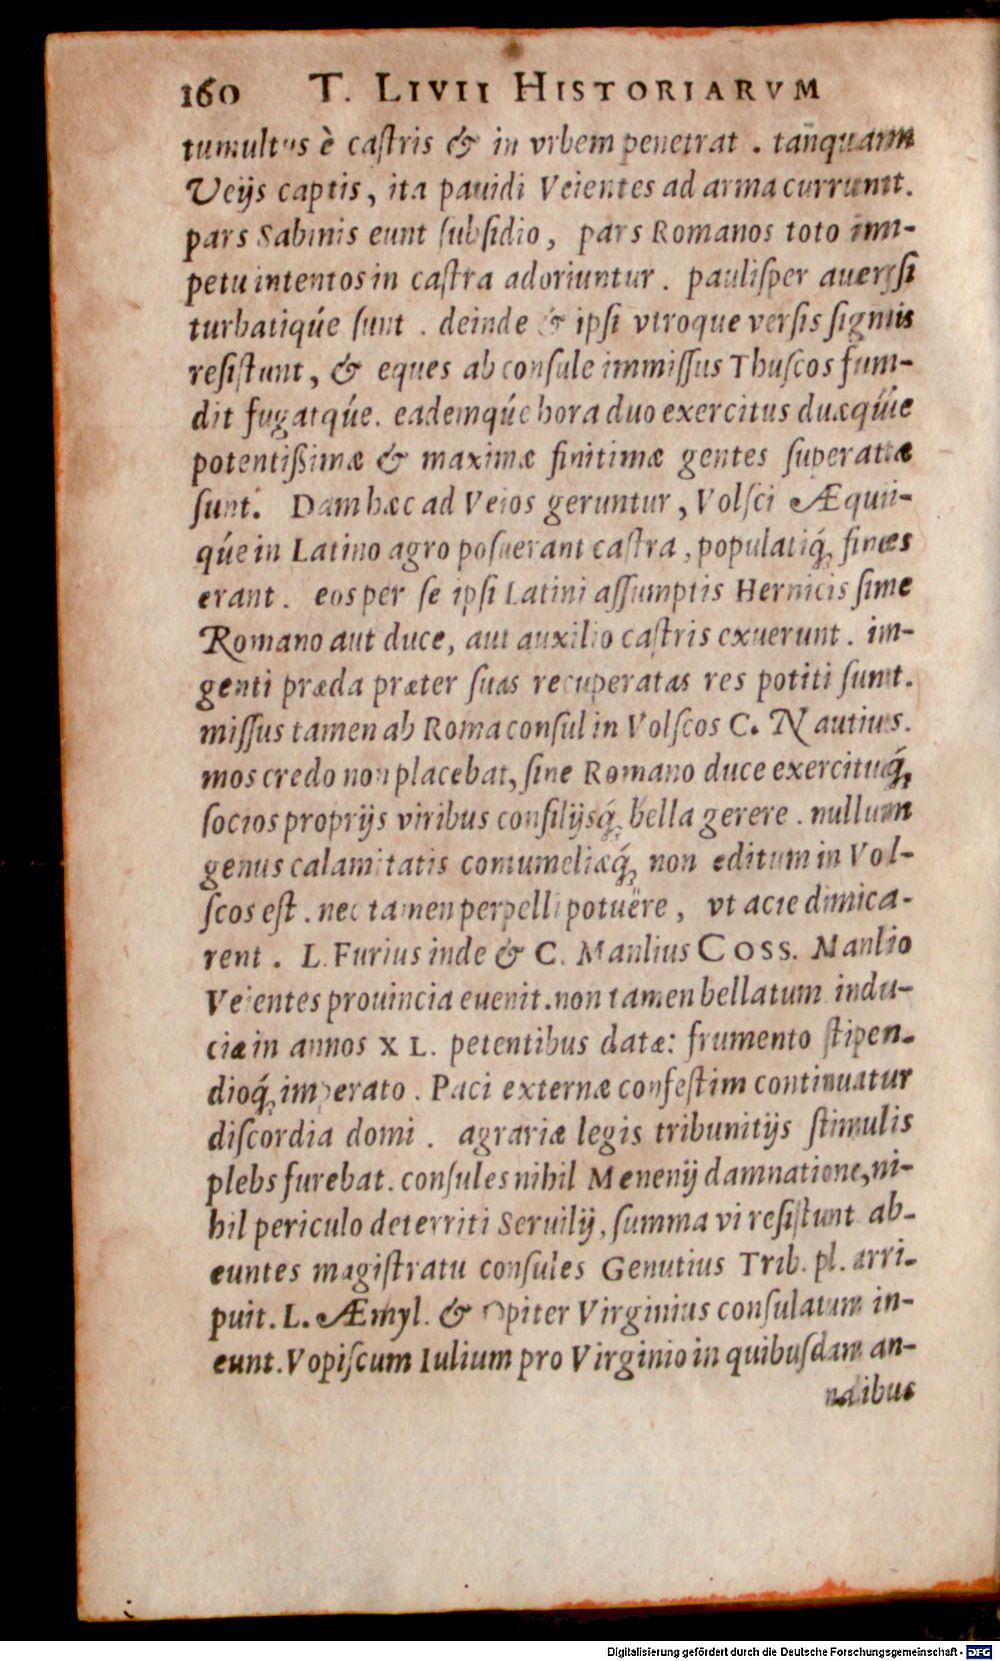 160 T. LIVII HISTORIARVM
tumultus è caſtris & in vrbem penetrat . tanquam
Veijs captis, ita pauidi Veientes ad arma currunt.
pars Sabinis eunt ſubſidio, pars Romanos toto im-
petu intentos in caſtra adoriuntur . pauliſper auerſi
turbatiq́ue ſunt . deinde & ipſi vtroque verſis ſignis
reſiſtunt, & eques ab conſule immiſſus Thuſcos fun-
dit fugatq́ue. eademq́ue hora duo exercitus duæq́ue
potentißimæ & maximæ finitimæ gentes ſuperatæ
ſunt. Dam hæc ad Veios geruntur, Volſci Æqui-
q́ue in Latino agro poſuerant caſtra, populatiq́; fines
erant . eos per ſe ipſi Latini aſſumptis Hernicis ſine
Romano aut duce, aut auxilio caſtris exuerunt . in-
genti præda præter ſuas recuperatas res potiti ſunt.
miſſus tamen ab Roma conſul in Volſcos C. Nautius.
mos credo non placebat, ſine Romano duce exercituq́;
ſocios proprijs viribus conſilijsq́; bella gerere . nullum
genus calamitatis contumeliæq́; non editum in Vol-
ſcos eſt . nec tamen perpelli potuëre, vt acie dimica-
rent . L. Furius inde & C. Manlius COSS. Manlio
Veientes prouincia euenit. non tamen bellatum indu-
ciæ in annos XL. petentibus datæ: frumento ſtipen-
dioq́; imperato . Paci externæ confeſtim continuatur
diſcordia domi . agrariæ legis tribunitijs ſtimulis
plebs furebat. conſules nihil Menenij damnatione, ni-
hil periculo deterriti Seruilij, ſumma vi reſiſtunt ab-
euntes magiſtratu conſules Genutius Trib. pl. arri-
puit. L. Æmyl. & Opiter Virginius conſulatum in-
eunt. Vopiſcum Iulium pro Virginio in quibuſdam an-
nalibus
Digitalisierung gefördert durch die Deutsche Forschungsgemeinschaft - DFG